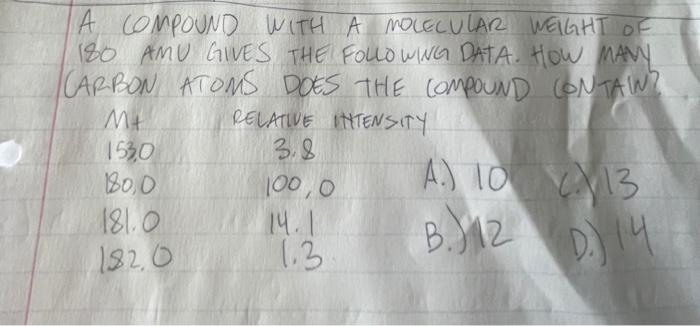 A COMPOUND WITH A MOLECULAR WEIGHT OF
180 AMU GIVES THE FOLLOWING DATA. HOW MANY
CARBON ATOMS DOES THE COMPOUND CONTAIN?
M+ RELATIVE INTENSITY
153.0 3.8
180.0 100.0 A.) 10 C.) 13
181.0 14.1 B.) 12 D.) 14
182.0 1.3